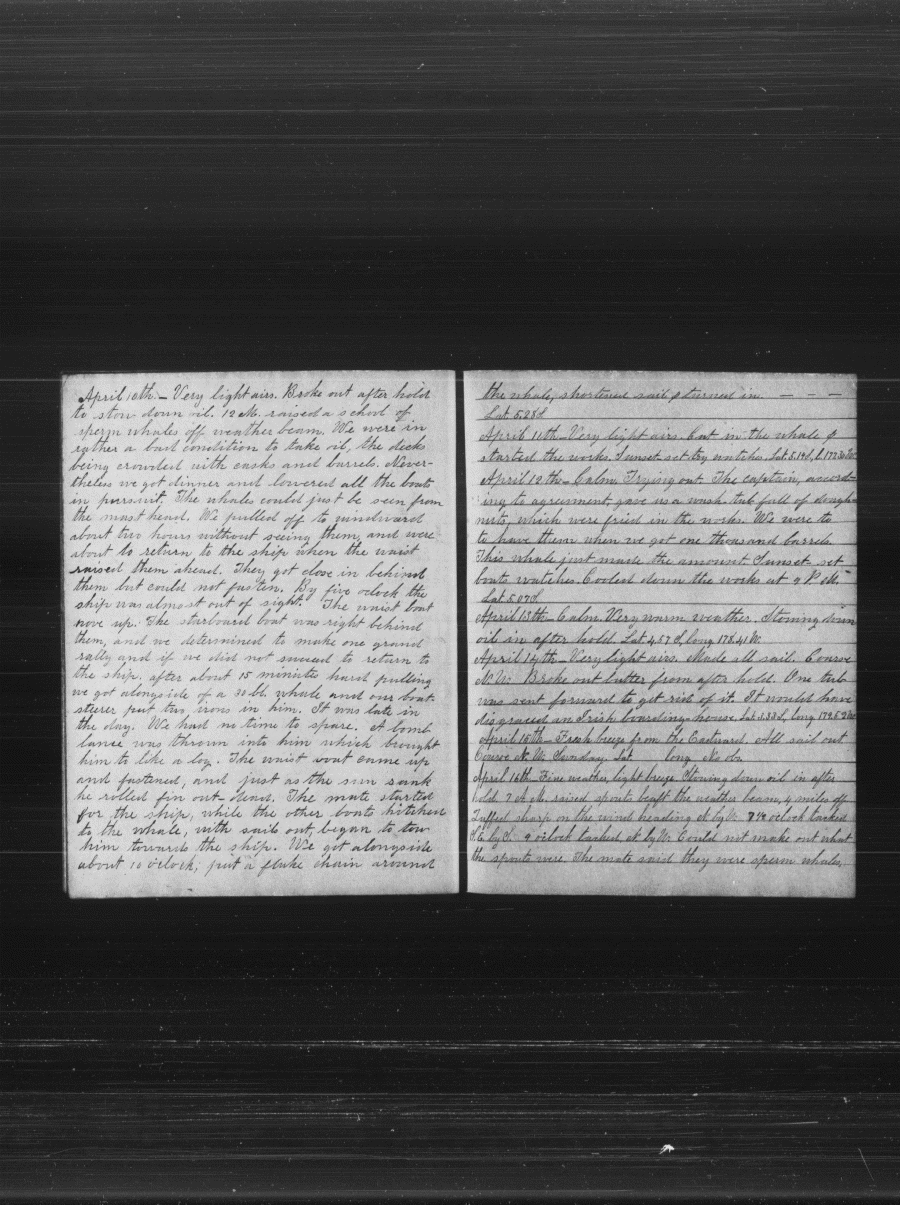 April 10th. — Very light airs. Broke out after hold
to stow down oil. 12 M. raised a school of
sperm whales off weather beam. We were in
rather a bad condition to take oil, the decks
being crowded with casks and barrels. Never-
theless we got dinner and lowered all the boats
in pursuit. The whales could just be seen from
the mast head. We pulled off to windward
about two hours without seeing them, and were
about to return to the ship when the waist
raised them ahead. They got close in behind
them but could not fasten. By five oclock the
ship was almost out of sight. The waist boat
hove up. The starboard boat was right behind
them, and we determined to make one grand
rally and if we did not succeed to return to
the ship, after about 15 minutes hard pulling
we got alongside of a 30 bl. whale and our boat-
steerer put two irons in him. It was late in
the day. We had no time to spare. A bomb
lance was thrown into him which brought
him to like a log. The waist boat came up
and fastened, and just as the sun sank
he rolled fin out—dead. The mate started
for the ship, while the other boats hitched
to the whale, with sails out, began to tow
him towards the ship. We got alongside
about 10 o'clock, put a fluke chain around
the whale, shortened sail & turned in. — — —
Lat 5.28 S
April 11th — Very light airs. Cut in the whale &
started the works. Sunset set try watches. Lat 5.19 S, L.
April 12th — Calm. Trying out. The captain, accord-
ing to agreement, gave us a wash tub full of dough-
nuts, which were fried in the works. We were to
to have them when we got one thousand barrels.
This whale just made the amount. Sunset set
boats watches. Cooled down the works at 9 P.M. —
Lat 5.07 S
April 13th — Calm. Very warm weather. Stowing down
oil in after hold. Lat 4.57 S, long 178.41 W.
April 14th — Very light airs. Made all sail. Course
N.W. Broke out butter from after hold. One tub
was sent forward to get rid of it. It would have
disgraced an Irish boarding-house. Lat 3.33 S, long 179.52 W
April 15th — Fresh breeze from the Eastward. All sail out
Course N.W. Sunday. Lat long No ob.
April 16th. Fine weather, light breeze. Stowing down oil in after
hold. 7 A.M. raised spouts beaft the weather beam, 4 miles off
Luffed sharp on the wind heading N. by W. 7½ oclock tacked
S.E. by S. 9 oclock tacked N. by W. Could not make out what
the spouts were. The mate said they were sperm whales,